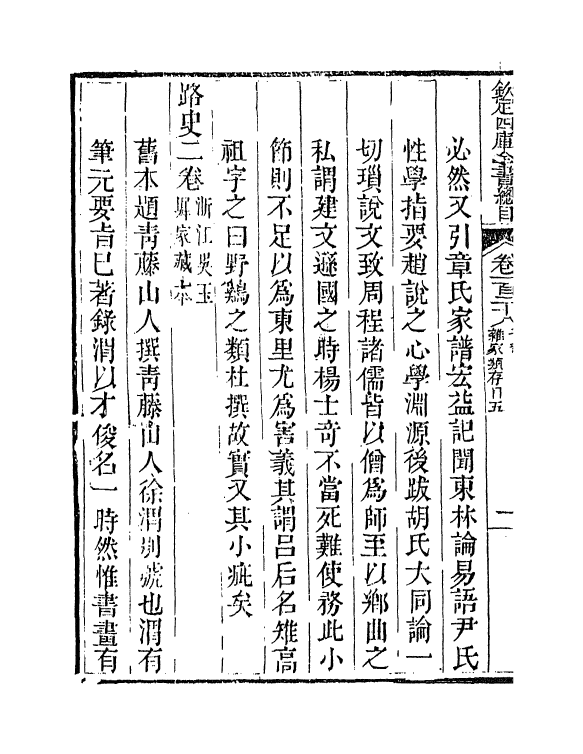 欽定四庫全書總目 卷一百二十八 子部 雜家類存目五 一
必然又引章氏家譜宏益記聞東林論易語尹氏
性學指要趙說之心學淵源後跋胡氏大同論一
切瑣說文致周程諸儒皆以僧爲師至以鄉曲之
私謂建文遜國之時楊士奇不當死難使務此小
節則不足以爲東里尤爲害義其謂呂后名雉高
祖字之曰野鷄之類杜撰故實又其小疵矣
路史二卷浙江吳玉墀家藏本
舊本題靑藤山人撰靑藤山人徐渭別號也渭有
筆元要旨已著錄渭以才俊名一時然惟書畫有